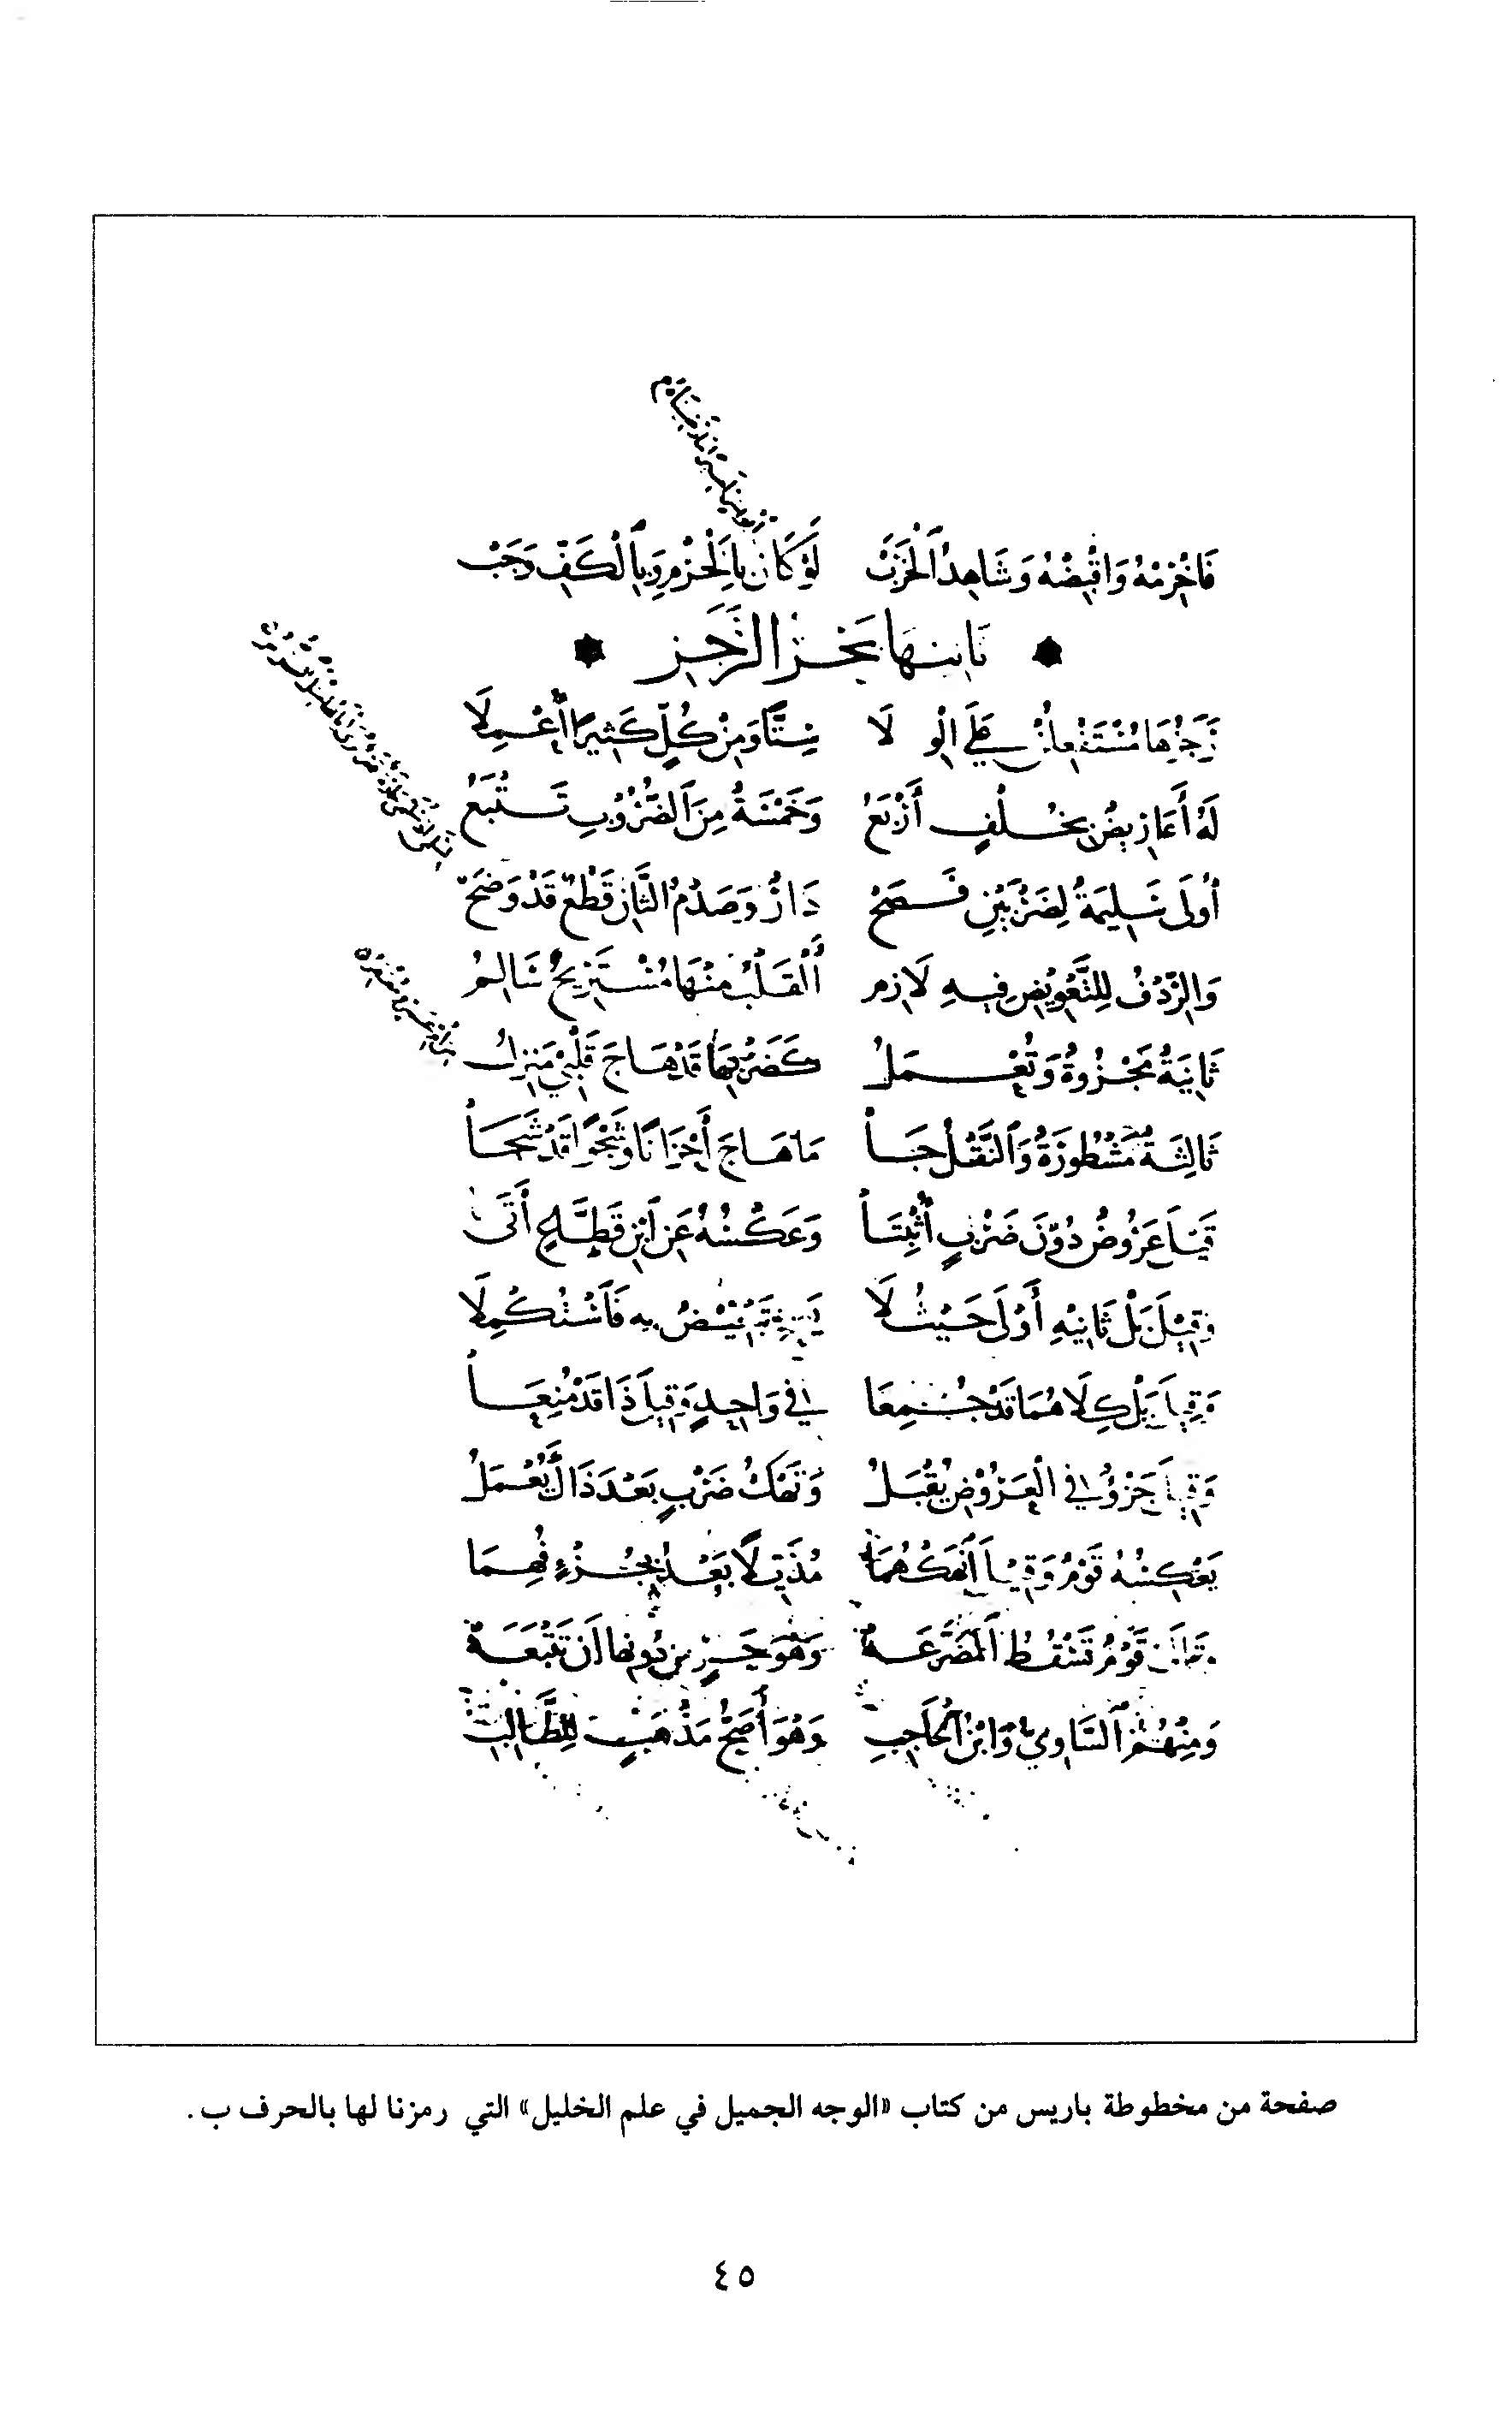 فَاخْرِمْهُ وَاقْبِضْهُ وَشَاهِدُ الْخَرَبْ لَوْ كَانَ بِالْخَرْمِ وَبِالْكَفِّ وَجَبْ
ثانيها بَحْرُ الرَّجَزِ
رَجَزُهَا مُسْتَفْعِلُنْ عَلَى الْوِلَا سِتًّا وَمِنْ كُلٍّ كَثِيرًا أُعْمِلَا
لَهُ أَعَارِيضٌ بِخُلْفٍ أَرْبَعُ وَخَمْسَةٌ مِنَ الضُّرُوبِ تَسْتَتْبَعُ
أُولَى سَلِيمَةٌ لِضَرْبَيْنِ فَصَحْ دَارٌ وَصَدْمُ الثَّانِ قَطْعٌ قَدْ وَضَحْ
وَالرِّدْفُ لِلتَّعْوِيضِ فِيهِ لَازِم أَلْقَلْبُ مِنْهَا مُسْتَرِيحٌ سَالِمُ
ثَانِيَةٌ مَجْزُوءَةٌ وَتُعْمَلُ كَضَرْبِهَا قَدْ هَاجَ قَلْبِي مَنْزِلُ
ثَالِثَةٌ مَشْطُورَةٌ وَالنَّقْلُ جَا مَا هَاجَ أَحْزَانًا وَشَجْوًا قَدْ شَجَا
قِيلَ عَرُوضٌ دُونَ ضَرْبٍ أُثْبِتَا وَعَكْسُهُ عَنِ ابْنِ قَطَّاعٍ أَتَى
وَقِيلَ بَلْ ثَانِيهِ أَوْلَى حَيْثُ لَا فَاسْتُكْمِلَا
وَقِيلَ بَلْ كِلَاهُمَا قَدْ جُمِعَا فِي وَاحِدٍ وَقِيلَ ذَا قَدْ مُنِعَا
وَقِيلَ جَزْؤٌ فِي الْعَرُوضِ يُقْبَلُ وَنَهْكُ ضَرْبٍ بَعْدَ ذَاكَ يُعْمَلُ
بِعَكْسِهُ قَوْمٌ وَقِيلَ انْهَكْهُمَا مُذَيِّلًا بَعْدُ بِجُزْءٍ فُهِمَا
وَقَالَ قَوْمٌ تَسْقُطُ الْمُصَرَّعَهْ وَهْوَ حَرٍ مِنْ دُونِهَا أَنْ تَتْبَعَهْ
وَمِنْهُمُ السَّاوِيُّ وَابْنُ الْحَاجِبِ وَهُوَ أَصَحُّ مَذْهَبٍ لِلطَّالِبِ
صفحة من مخطوطة باريس من كتاب «الوجه الجميل في علم الخليل» التي رمزنا لها بالحرف ب .
٤٥